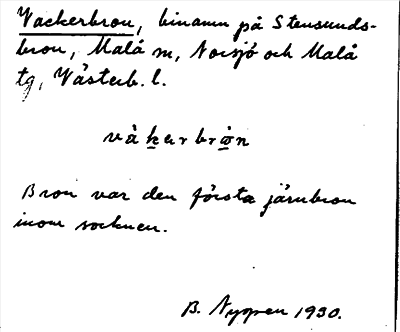 Vackerbron, binamn på Stensunds-
bron, Malå sn, Norsjö och Malå
tg, Västerb. l.
vàkerbrǫ̀n
Bron var den första järnbron
inom socknen.
B. Nygren 1930.